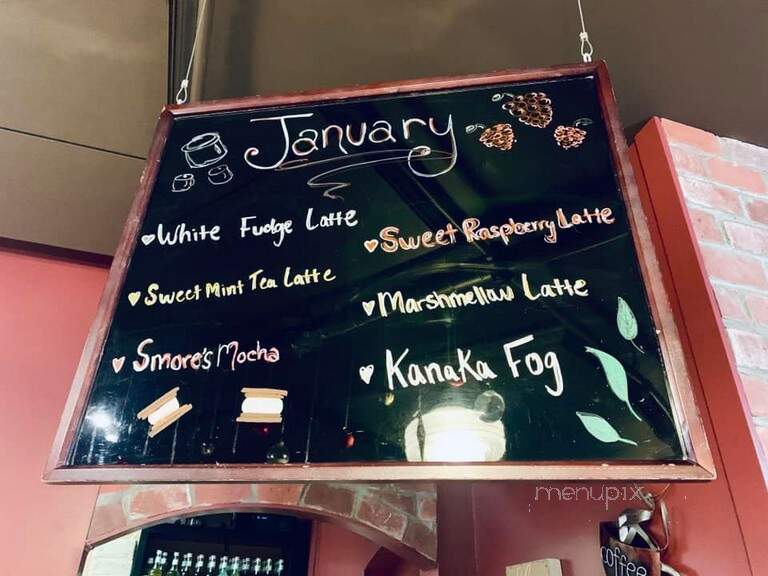 January
White Fudge Latte
Sweet Mint Tea Latte
Smore's Mocha
Sweet Raspberry Latte
Marshmellow Latte
Kanaka Fog
menupix
coffee